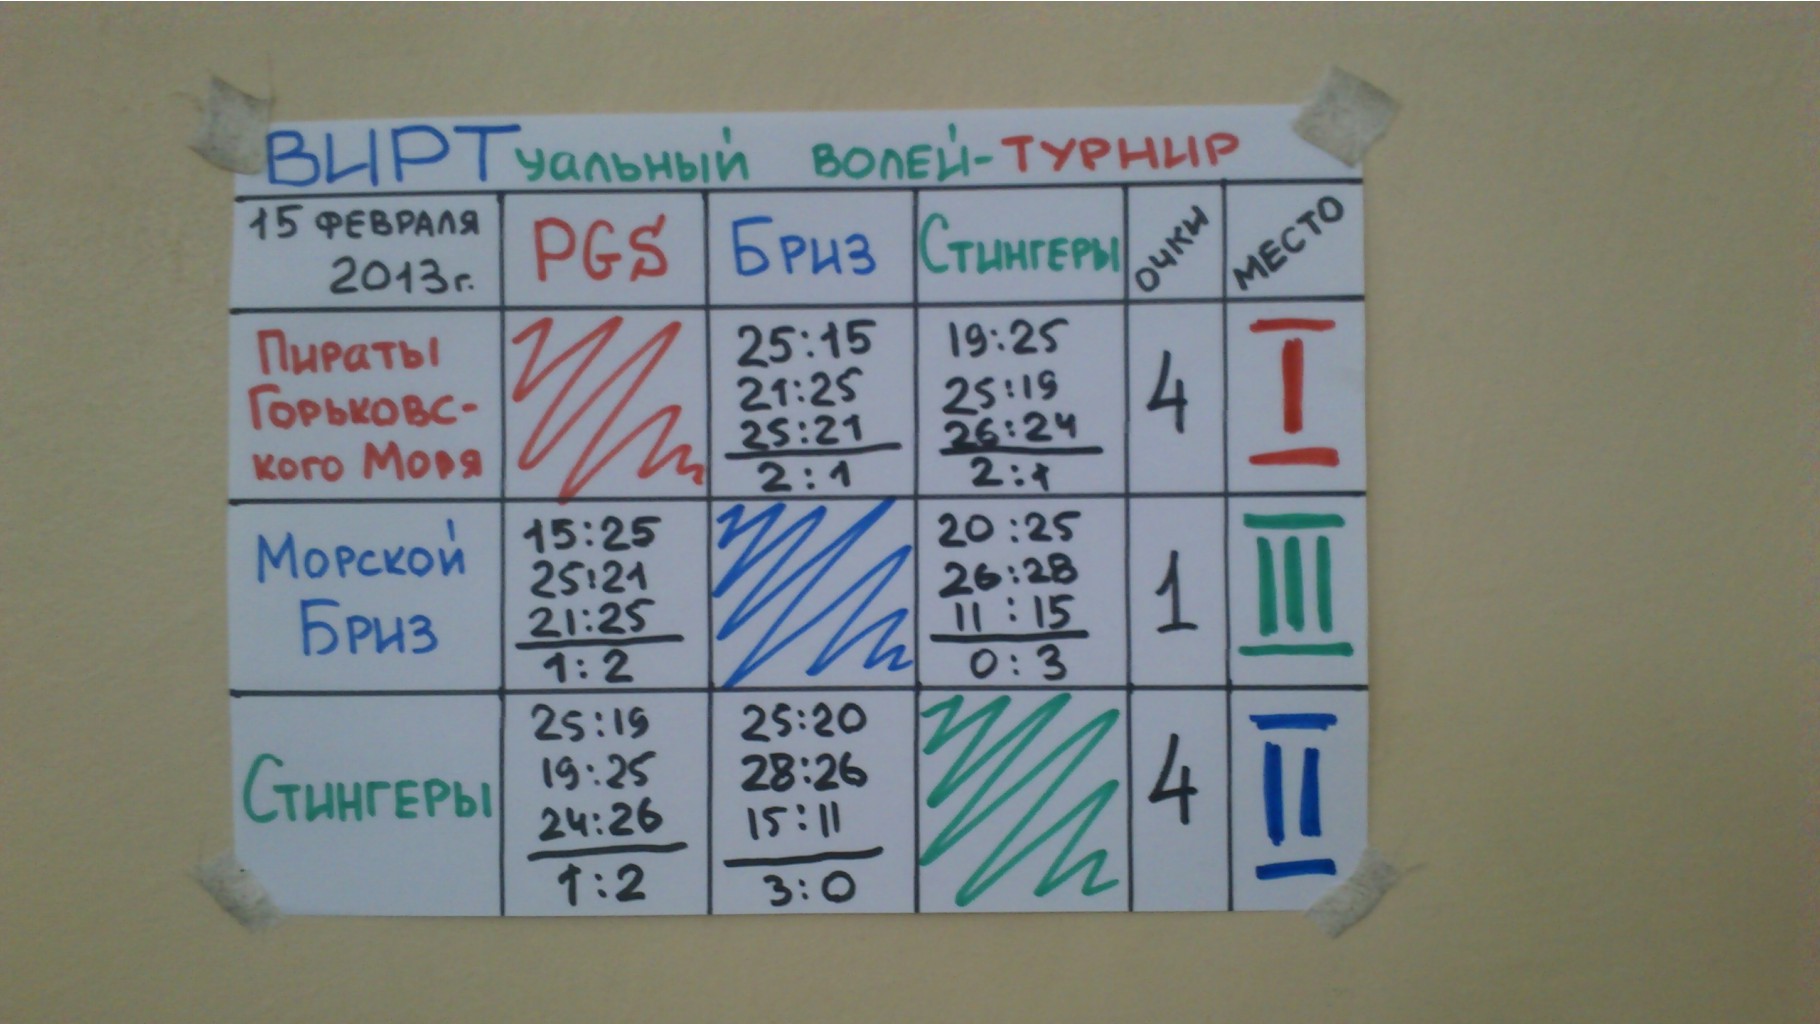 ВИРТуальный волей-турнир
15 ФЕВРАЛЯ
2013г.
PGS
Бриз
Стингеры
ОЧКИ
МЕСТО
Пираты
Горьковс-
кого Моря
25:15
21:25
25:21
2:1
19:25
25:19
26:24
2:1
4
I
Морской
Бриз
15:25
25:21
21:25
1:2
20:25
26:28
11:15
0:3
1
III
Стингеры
25:19
19:25
24:26
1:2
25:20
28:26
15:11
3:0
4
II